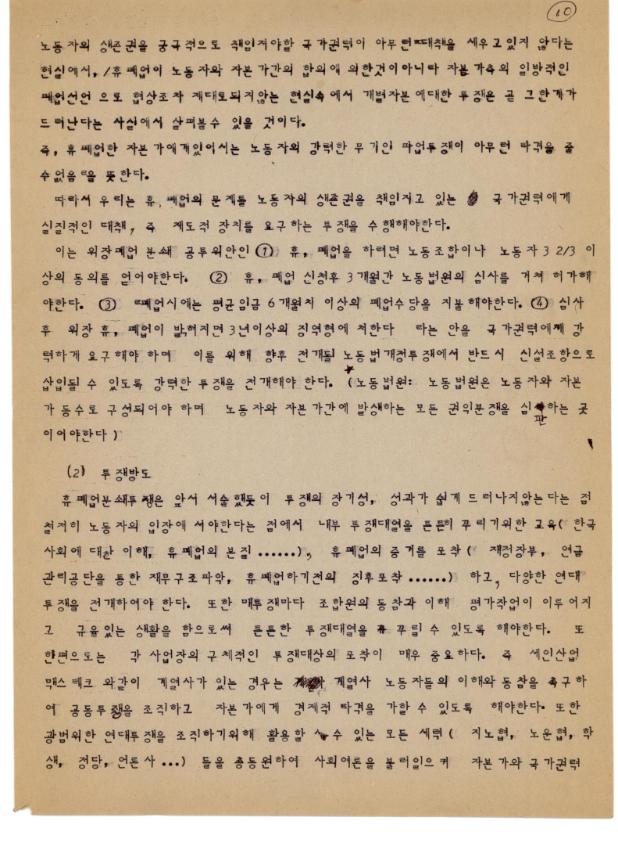 10
노동자의 생존권을 궁극적으로 책임져야할 국가권력이 아무런 대책을 세우고 있지 않다는
현실에서, /휴폐업이 노동자와 자본가간의 합의에 의한것이 아니라 자본가측의 일방적인
폐업선언 으로 협상조차 제대로되지않는 현실속에서 개별자본에대한 투쟁은 곧 그한계가
드러난다는 사실에서 살펴볼수 있을 것이다.
즉, 휴폐업한 자본가에게있어서는 노동자의 강력한 무기인 파업투쟁이 아무런 타격을 줄
수없음을 뜻한다.
따라서 우리는 휴,폐업의 문제를 노동자의 생존권을 책임지고 있는 국가권력에게
실질적인 대책, 즉 제도적 장치를 요구하는 투쟁을 수행해야한다.
이는 위장폐업 분쇄 공투위안인 ① 휴, 폐업을 하려면 노동조합이나 노동자 3 2/3 이
상의 동의를 얻어야한다. ② 휴, 폐업 신청후 3개월간 노동법원의 심사를 거쳐 허가해
야한다. ③ 폐업시에는 평균임금 6개월치 이상의 폐업수당을 지불해야한다. ④ 심사
후 위장 휴, 폐업이 밝혀지면 3년이상의 징역형에 처한다 라는 안을 국가권력에께 강
력하게 요구해야 하며 이를 위해 향후 전개될 노동법개정투쟁에서 반드시 신설조항으로
삽입될 수 있도록 강력한 투쟁을 전개해야 한다. (노동법원: 노동법원은 노동자와 자본
가 동수로 구성되어야 하며 노동자와 자본가간에 발생하는 모든 권익분쟁을 심판하는 곳
이어야한다)
(2) 투쟁방도
휴폐업분쇄투쟁은 앞서 서술했듯이 투쟁의 장기성, 성과가 쉽게 드러나지않는다는 점
철저히 노동자의 입장에 서야한다는 점에서 내부 투쟁대열을 튼튼히 꾸리기위한 교육( 한국
사회에 대한 이해, 휴폐업의 본질 ......), 휴폐업의 증거를 포착( 재정장부, 연금
관리공단을 통한 재무구조파악, 휴폐업하기전의 징후포착 ......) 하고, 다양한 연대
투쟁을 전개하여야 한다. 또한 매투쟁마다 조합원의 동참과 이해 평가작업이 이루어지
고 규율있는 생활을 함으로써 튼튼한 투쟁대열을 꾸릴 수 있도록 해야한다. 또
한편으로는 각 사업장의 구체적인 투쟁대상의 포착이 매우 중요하다. 즉 세인산업
맥스테크 와같이 계열사가 있는 경우는 계열사 노동자들의 이해와 동참을 촉구하
여 공동투쟁을 조직하고 자본가에게 경제적 타격을 가할 수 있도록 해야한다. 또한
광범위한 연대투쟁을 조직하기위해 활용할 수 있는 모든 세력( 지노협, 노운협, 학
생, 정당, 언론사 ...) 들을 총동원하여 사회여론을 불러일으켜 자본가와 국가권력